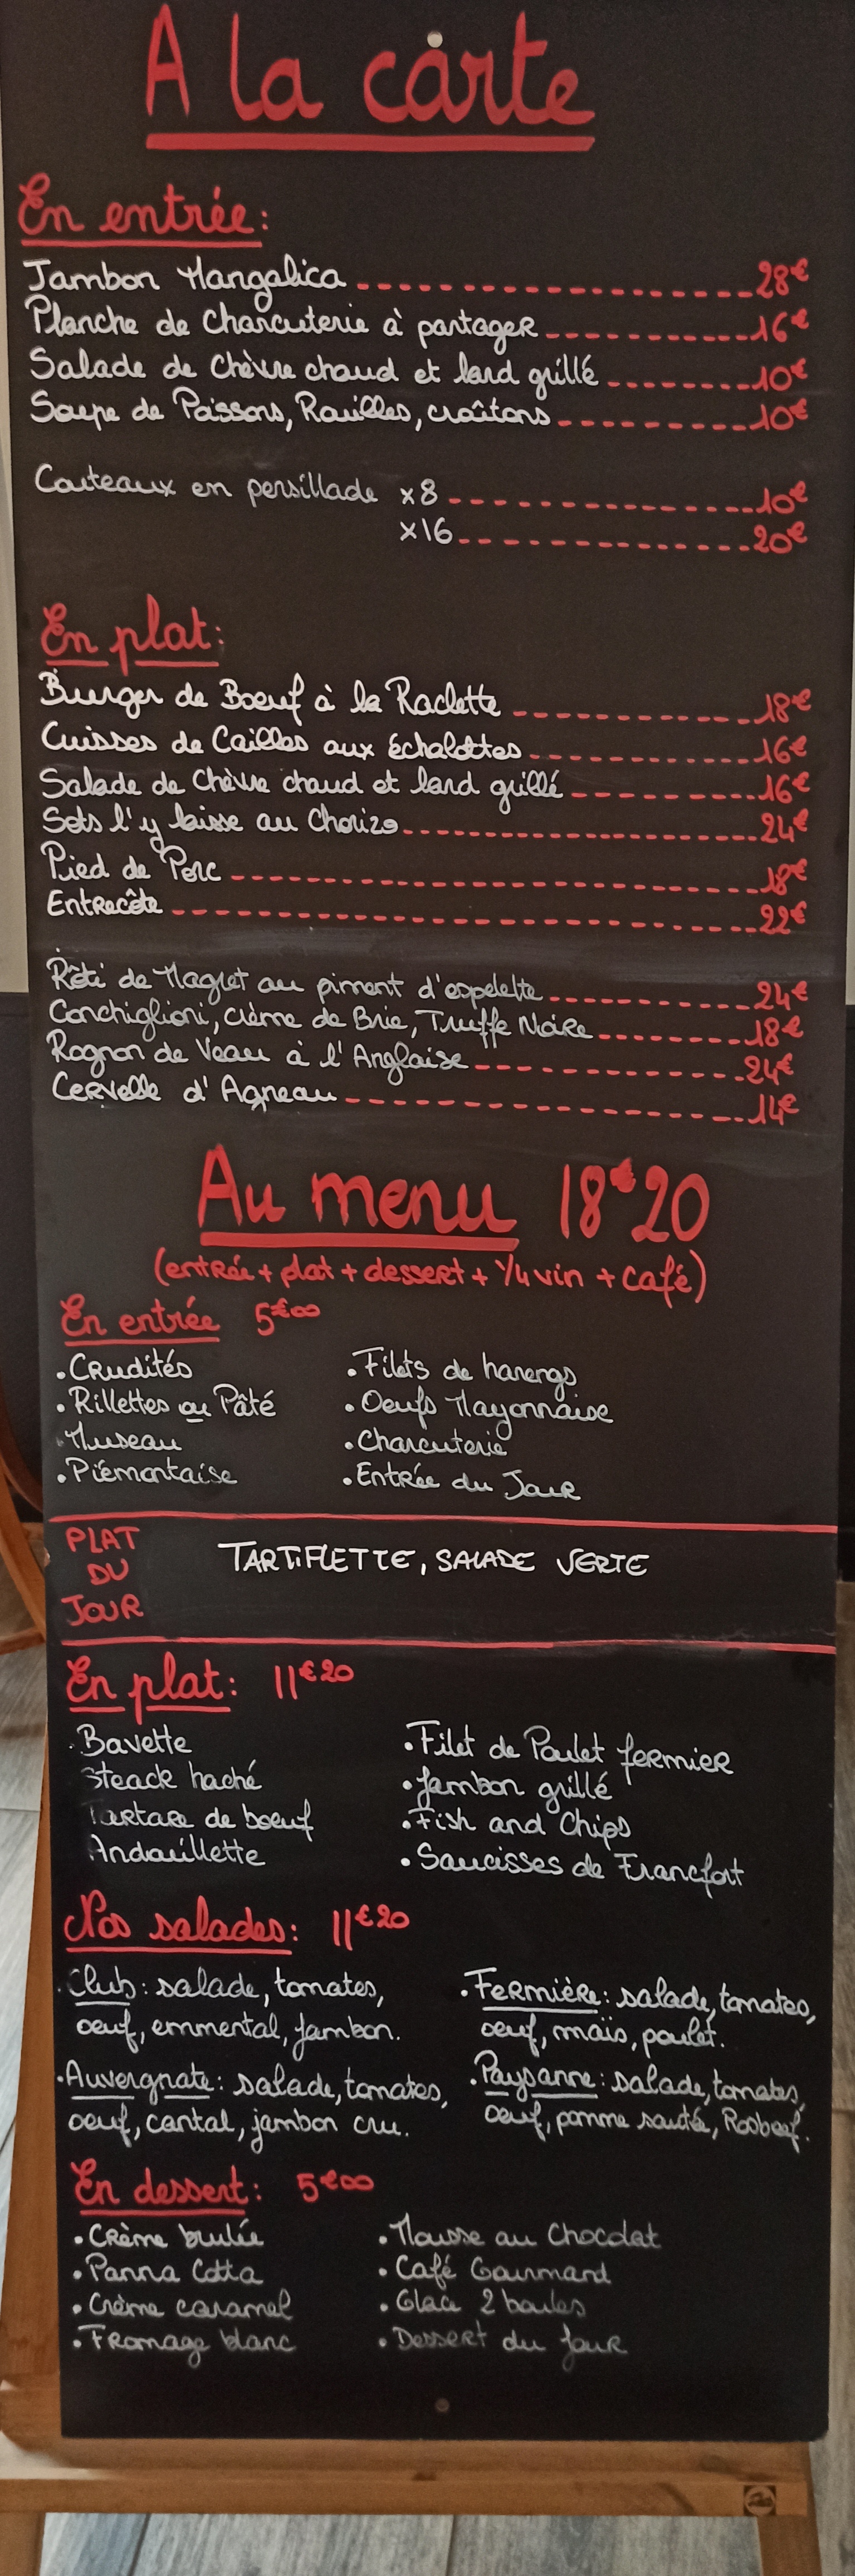 A la carte
En entrée:
Jambon Mangalica 28€
Planche de Charcuterie à partager 16€
Salade de Chèvre chaud et lard grillé 10€
Soupe de Poissons, Rouilles, croûtons 10€
Couteaux en persillade x8 10€
x16 20€
En plat:
Burger de Boeuf à la Raclette 18€
Cuisses de Cailles aux échalottes 16€
Salade de Chèvre chaud et lard grillé 16€
Sots l'y laisse au Chorizo 24€
Pied de Porc 18€
Entrecôte 22€
Rôti de Magret au piment d'espelette 24€
Conchiglioni, crème de Brie, Truffe Noire 18€
Rognon de Veau à l'Anglaise 24€
Cervelle d'Agneau 14€
Au menu 18€20
(entrée + plat + dessert + 1/4 vin + café)
En entrée 5€00
• Crudités • Filets de harengs
• Rillettes ou Pâté • Oeufs Mayonnaise
• Museau • Charcuterie
• Piémontaise • Entrée du Jour
PLAT
DU TARTIFLETTE, SALADE VERTE
JOUR
En plat: 11€20
• Bavette • Filet de Poulet fermier
Steack haché • Jambon grillé
Tartare de boeuf • Fish and Chips
Andouillette • Saucisses de Francfort
Nos salades: 11€20
• Club: salade, tomates,
oeuf, emmental, jambon.
• Fermière: salade, tomates,
oeuf, maïs, poulet.
• Auvergnate: salade, tomates,
oeuf, cantal, jambon cru.
• Paysanne: salade, tomates,
oeuf, pomme sautée, Rosbeef.
En dessert: 5€00
• Crème brulée • Mousse au Chocolat
• Panna Cotta • Café Gourmand
• Crème caramel • Glace 2 boules
• Fromage blanc • Dessert du Jour